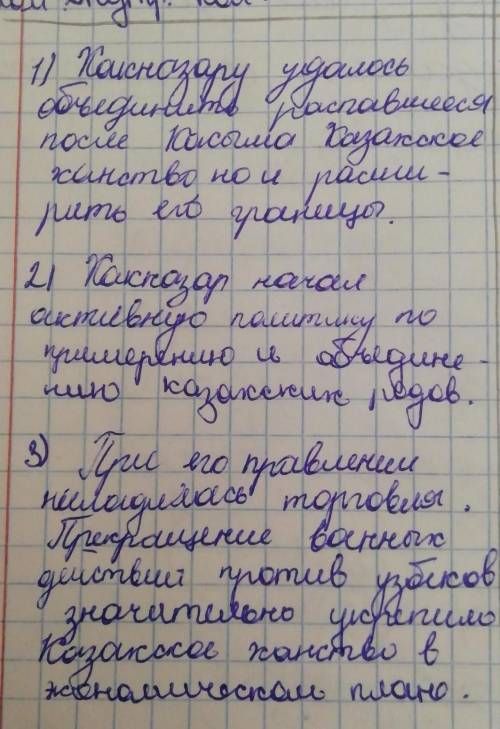 1) Хакназару удалось
объединить распавшееся
после Касыма Казахское
ханство но и расши-
рить его границы.
2) Хакназар начал
активную политику по
примерению и объедине-
нию казахских родов.
3) При его правлении
наладилась торговля.
Прекращение военных
действий против узбеков
значительно укрепило
Казахское ханство в
экономическом плане.